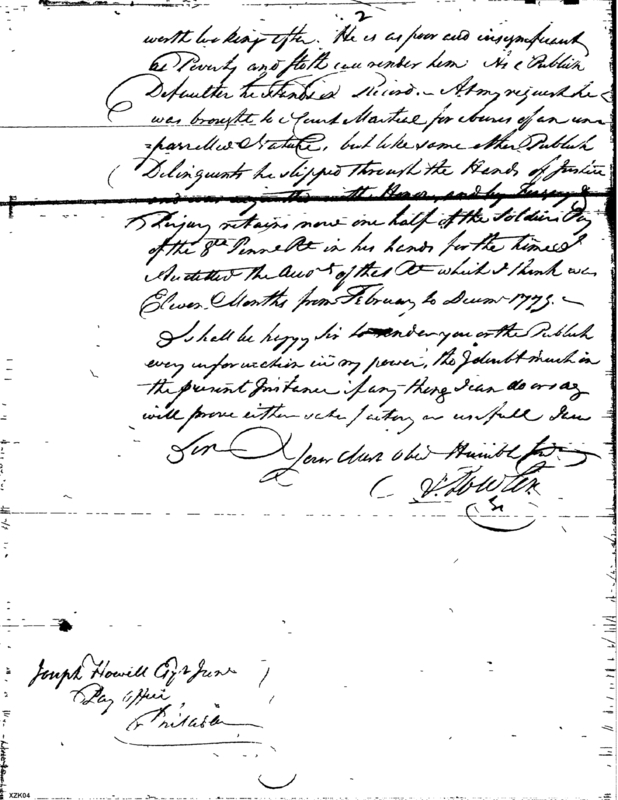 2
worth looking after. He is as poor and insignificant
as Poverty and sloth can render him. As a Publick
Defaulter he stands on Record. - At my request he
was brought to a Court Martial for abuses of an un-
=parrelled Nature, but like some other Publick
Delinquents he slipped through the Hands of Justice
and was acquitted with Honor, and by
Perjury retains now one half of the Soldiers Pay
of the 8th Penna Rt in his hands for the time I
Audited the Accots of that Rt which I think was
Eleven Months from February to Decemr 1779. -
I shall be happy Sir to render you or the Publick
every information in my power, tho I doubt much in
the present Instance if any thing I can do or say
will prove either satisfactory or usefull I am
Sir
Your Most Obed Humble Srt
A. Fowler
Joseph Howell Esqr Junr
Pay Office
Philada
XZK04